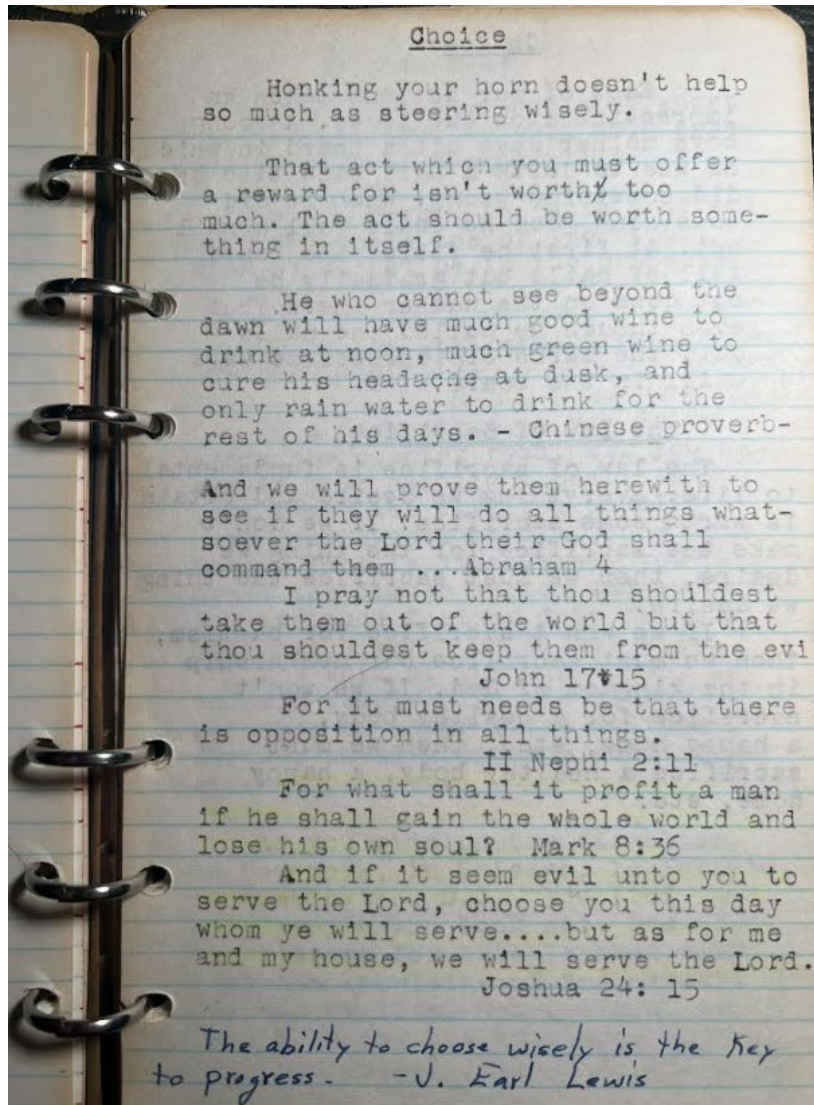 Choice
Honking your horn doesn't help
so much as steering wisely.
That act which you must offer
a reward for isn't worth too
much. The act should be worth some-
thing in itself.
He who cannot see beyond the
dawn will have much good wine to
drink at noon, much green wine to
cure his headache at dusk, and
only rain water to drink for the
rest of his days. - Chinese proverb-
And we will prove them herewith to
see if they will do all things what-
soever the Lord their God shall
command them ...Abraham 4
I pray not that thou shouldest
take them out of the world but that
thou shouldest keep them from the evi
John 17:15
For it must needs be that there
is opposition in all things.
II Nephi 2:11
For what shall it profit a man
if he shall gain the whole world and
lose his own soul? Mark 8:36
And if it seem evil unto you to
serve the Lord, choose you this day
whom ye will serve....but as for me
and my house, we will serve the Lord.
Joshua 24: 15
The ability to choose wisely is the key
to progress. - J. Earl Lewis